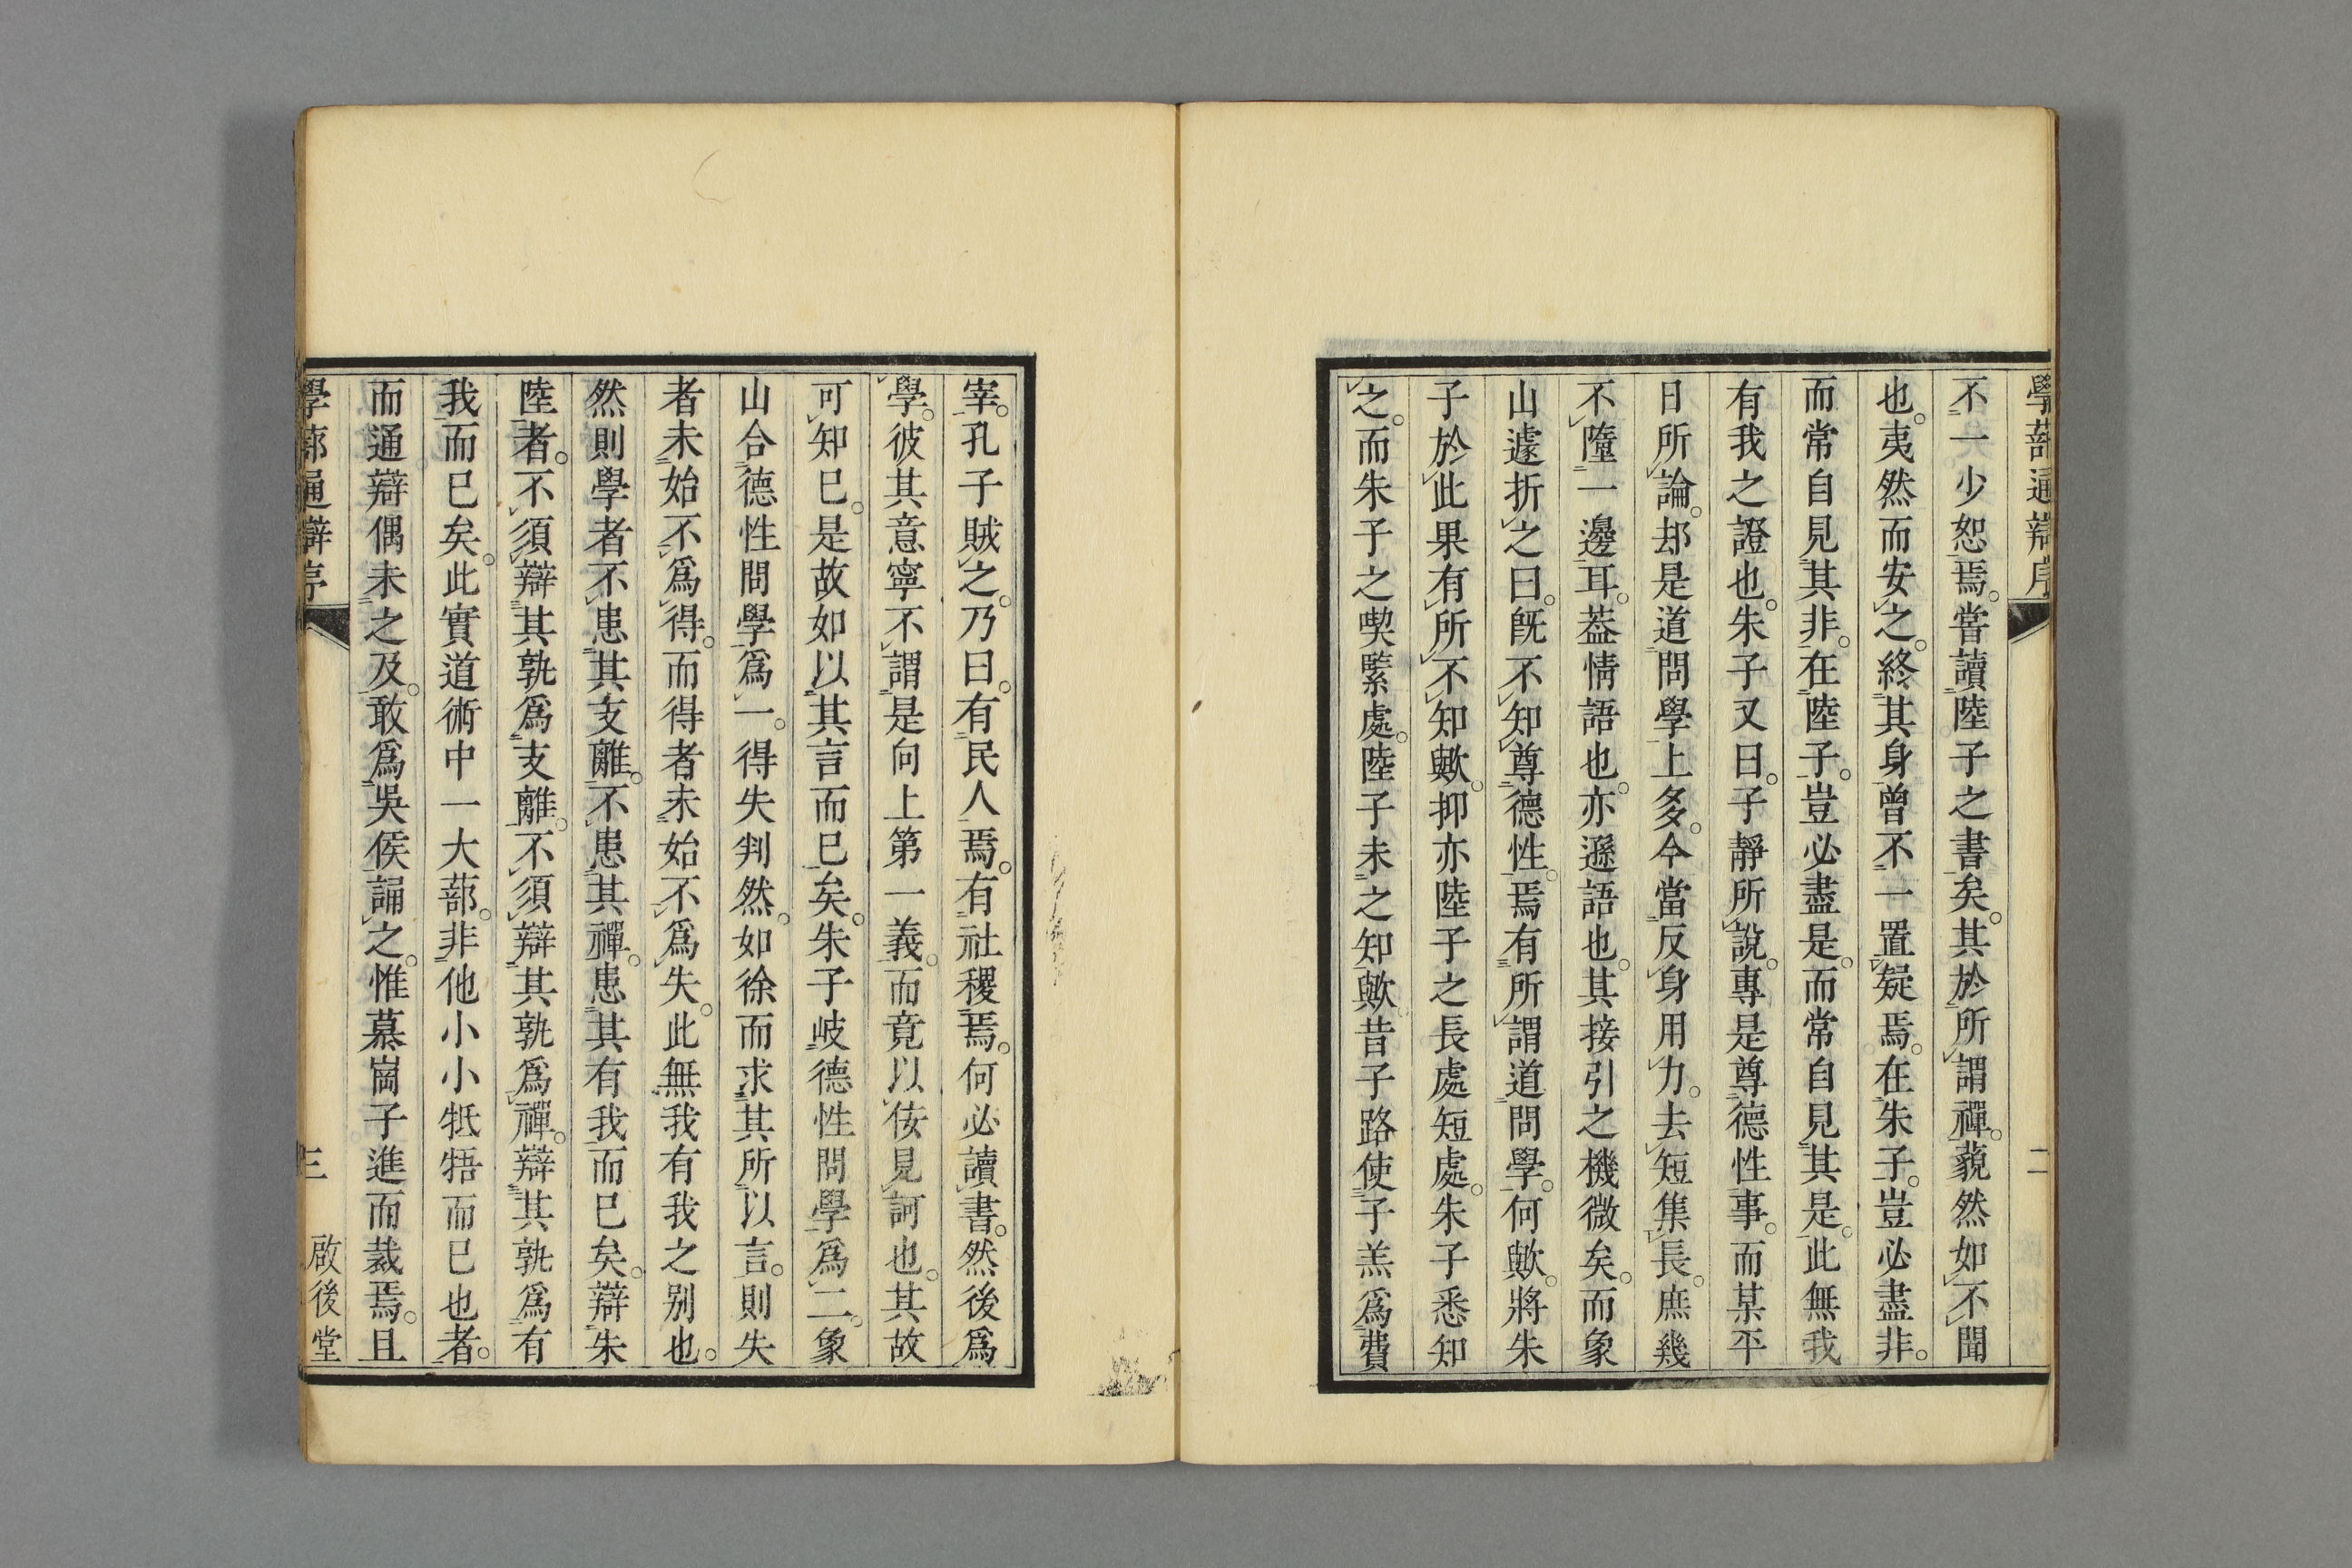 學蔀通辯序
二
不一少恕焉。嘗讀陸子之書矣。其於所謂禪。藐然如不聞
也。夷然而安之。終其身曾不一置疑焉。在朱子。豈必盡非。
而常自見其非。在陸子。豈必盡是。而常自見其是。此無我
有我之證也。朱子又曰。子靜所說。專是尊德性事。而某平
日所論。却是道問學上多。今當反身用力。去短集長。庶幾
不墮一邊耳。葢情語也。亦遜語也。其接引之機微矣。而象
山遽折之曰。旣不知尊德性。焉有所謂道問學。何歟。將朱
子於此果有所不知歟。抑亦陸子之長處短處。朱子悉知
之。而朱子之喫緊處。陸子未之知歟。昔子路使子羔爲費
宰。孔子賊之。乃曰。有民人焉。有社稷焉。何必讀書。然後爲
學。彼其意寧不謂是向上第一義。而竟以佞見訶也。其故
可知已。是故如以其言而已矣。朱子岐德性問學爲二。象
山合德性問學爲一。得失判然。如徐而求其所以言。則失
者未始不爲得。而得者未始不爲失。此無我有我之别也。
然則學者不患其支離。不患其禪。患其有我而已矣。辯朱
陸者。不須辯其孰爲支離。不須辯其孰爲禪。辯其孰爲有
我而已矣。此實道術中一大蔀。非他小小牴牾而已也者。
而通辯偶未之及。敢爲吳侯誦之。惟慕崗子進而裁焉。且
學蔀通辯序
三
啟後堂